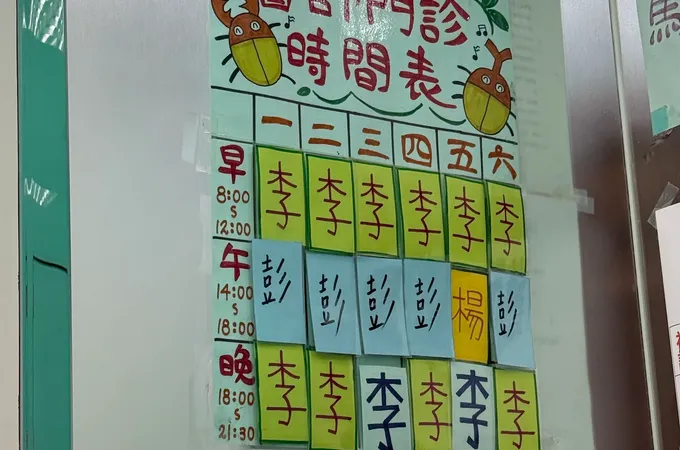 門診
時間表
一 二 三 四 五 六
早 8:00 S 12:00 李 李 李 李 李 李
午 14:00 S 18:00 彭 彭 彭 彭 楊 彭
晚 18:00 S 21:30 李 李 李 李 李 李